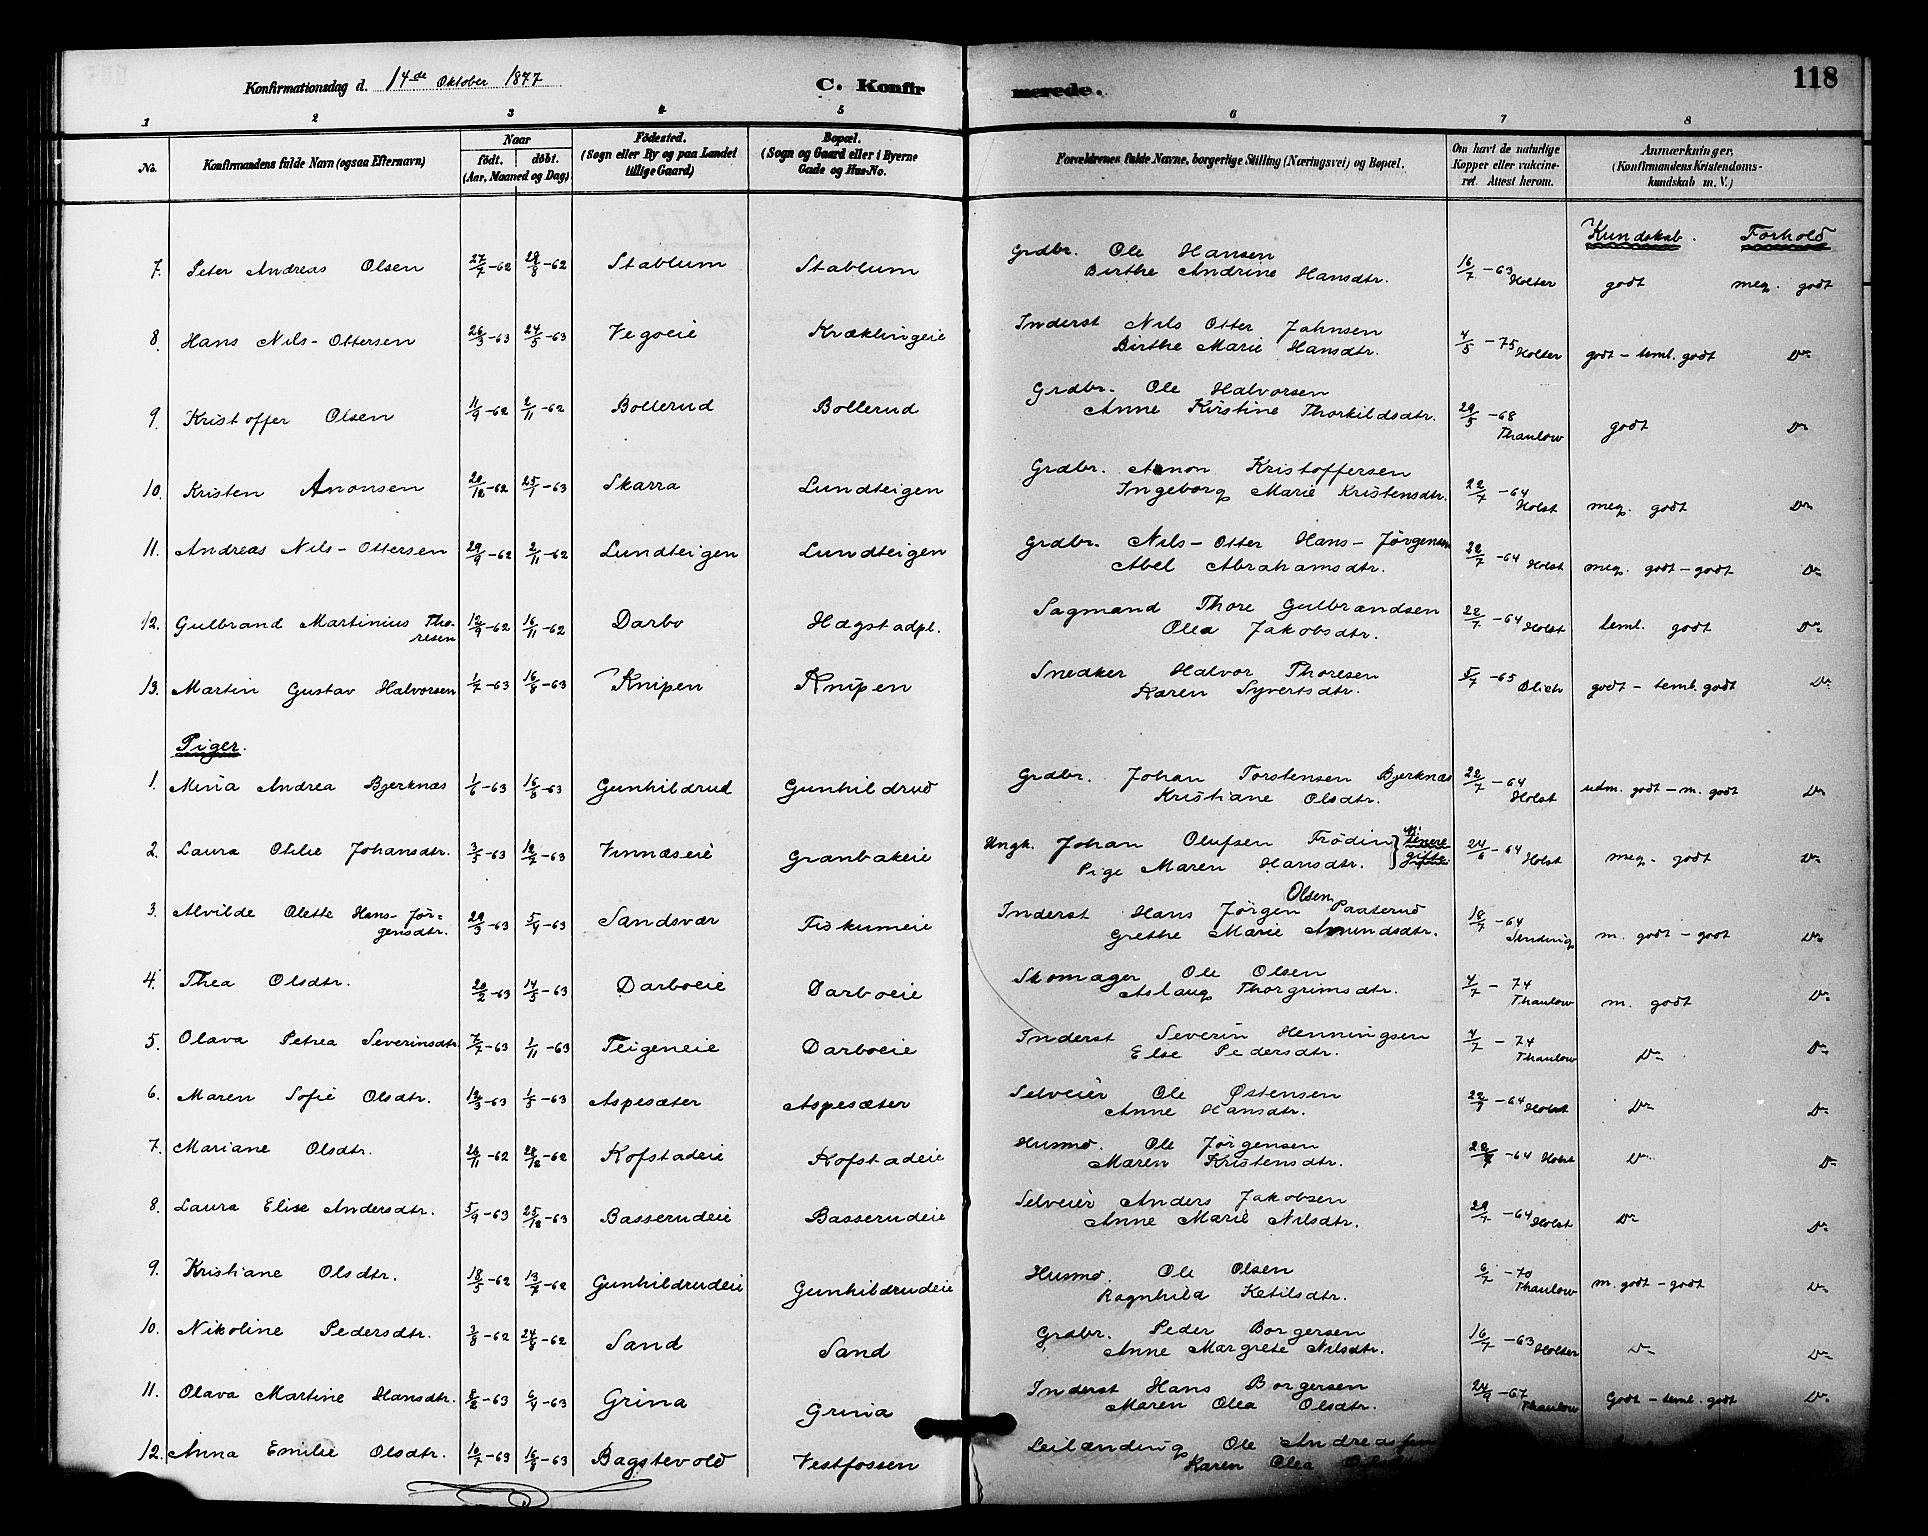 Konfirmationsdag d. 14de Oktober 1877 C. Konfirmerede. 118
1 2 3 4 5 6 7 8
No. Konfirmandens fulde Navn (ogsaa Efternavn) Naar födt. döbt. (Aar, Maaned og Dag) Födested. (Sogn eller By og paa Landet tillige Gaard) Bopæl. (Sogn og Gaard eller i Byerne Gade og Hus-No. Forældrenes fulde Navne, borgerlige Stilling (Næringsvei) og Bopæl. Om havt de naturlige Kopper eller vakcineret. Attest herom. Anmærkninger, (Konfirmandens Kristendomskundskab m. V.)
Kundskab. Forhold
7. Peter Andreas Olsen 27/7-62 29/8-62 Stablum Stablum Grdbr. Ole Hansen
Birthe Andrine Hansdtr. 16/7-63 Holter godt meg. godt
8. Hans Nils-Ottersen 26/3-63 24/5-63 Vegoeie Kræklingeie Inderst Nils Otter Jahnsen
Birthe Marie Hansdtr. 4/5-75 Holter godt - teml. godt Do
9. Kristoffer Olsen 11/9-62 2/11-62 Bollerud Bollerud Grdbr. Ole Halvorsen
Anne Kirstine Thorkildsdtr. 29/5-68 Thaulow godt Do
10. Kristen Anonsen 20/12-62 25/1-63 Skarra Lundteigen Grdbr. Anon Kristoffersen
Ingeborg Marie Kristensdtr. 22/7-64 Holst meg. godt Do
11. Andreas Nils-Ottersen 29/9-62 2/11-62 Lundteigen Lundteigen Grdbr. Nils-Otter Hans-Jørgensen
Abel Abrahamsdtr. 22/7-64 Holst meg. godt - godt Do
12. Gulbrand Martinius Tho-
resen 12/9-62 16/11-62 Darbo Hagstadpl. Sagmand Thore Gulbrandsen
Olea Jakobsdtr. 22/7-64 Holst teml. godt Do
13. Martin Gustav Halvorsen 1/7-63 16/8-63 Knipen Knipen Snedker Halvor Thoresen
Karen Syvertsdtr. 5/7-65 Blich godt - teml. godt Do
Piger.
1. Mina Andrea Bjerknæs 1/6-63 16/8-63 Gunhildrud Gunhildrud Grdbr. Johan Torstensen Bjerknæs
Kristiane Olsdtr. 22/7-64 Holst udm. godt - m. godt Do
2. Laura Otilie Johansdtr. 3/5-63 12/7-63 Vinnæseie Granbakeie Ungk. Johan Olufsen Frödin
Pige Maren Hansdtr. 24/6-64 Holst meg. godt Do
3. Alvilde Olette Hans-Jør=
gensdtr. 29/3-63 5/4-63 Sandsvær Fiskumeie Inderst Hans Jørgen Olsen Paaterud
Grethe Marie Amundsdtr. 18/7-64 m. godt - godt Do
4. Thea Olsdtr. 20/2-63 14/5-63 Darboeie Darboeie Skomager Ole Olsen
Aslaug Thorgrimsdtr. 4/7-74 Thaulow m. godt Do
5. Olava Petrea Severinsdtr. 7/7-63 1/11-63 Teigeneie Darboeie Inderst Severin Henningsen
Else Pedersdtr. 4/7-74 Thaulow Do Do
6. Maren Sofie Olsdtr. 12/3-63 1/5-63 Aspesæter Aspesæter Selveier Ole Østensen
Anne Hansdtr. 22/7-64 Holst Do Do
7. Mariane Olsdtr. 26/11-62 28/12-62 Kofstadeie Kofstadeie Husmd. Ole Jørgensen
Maren Kristensdtr. 22/7-64 Holst Do Do
8. Laura Elise Andersdtr. 5/9-63 25/12-63 Basserudeie Basserudeie Selveier Anders Jakobsen
Anne Marie Nilsdtr. 29/7-64 Holst Do Do
9. Kristiane Olsdtr. 18/5-62 13/7-62 Gunhildrudeie Gunhildrudeie Husmd. Ole Olsen
Ragnhild Ketilsdtr. 6/7-70 Thaulow m. godt - godt Do
10. Nikoline Pedersdtr. 3/8-62 24/8-62 Sand Sand Grdbr. Peder Borgersen
Anne Margrete Nilsdtr. 16/7-63 Holter Do Do
11. Olava Martine Hansdtr. 8/2-63 6/4-63 Grina Grina Inderst Hans Borgersen
Maren Olea Olsdtr. 24/9-67 Thaulow Godt - teml. godt Do
12. Anna Emilie Olsdtr. 10/7-63 16/8-63 Bagstevold Vestfossen Leilænding Ole Andreas
Karen Olea